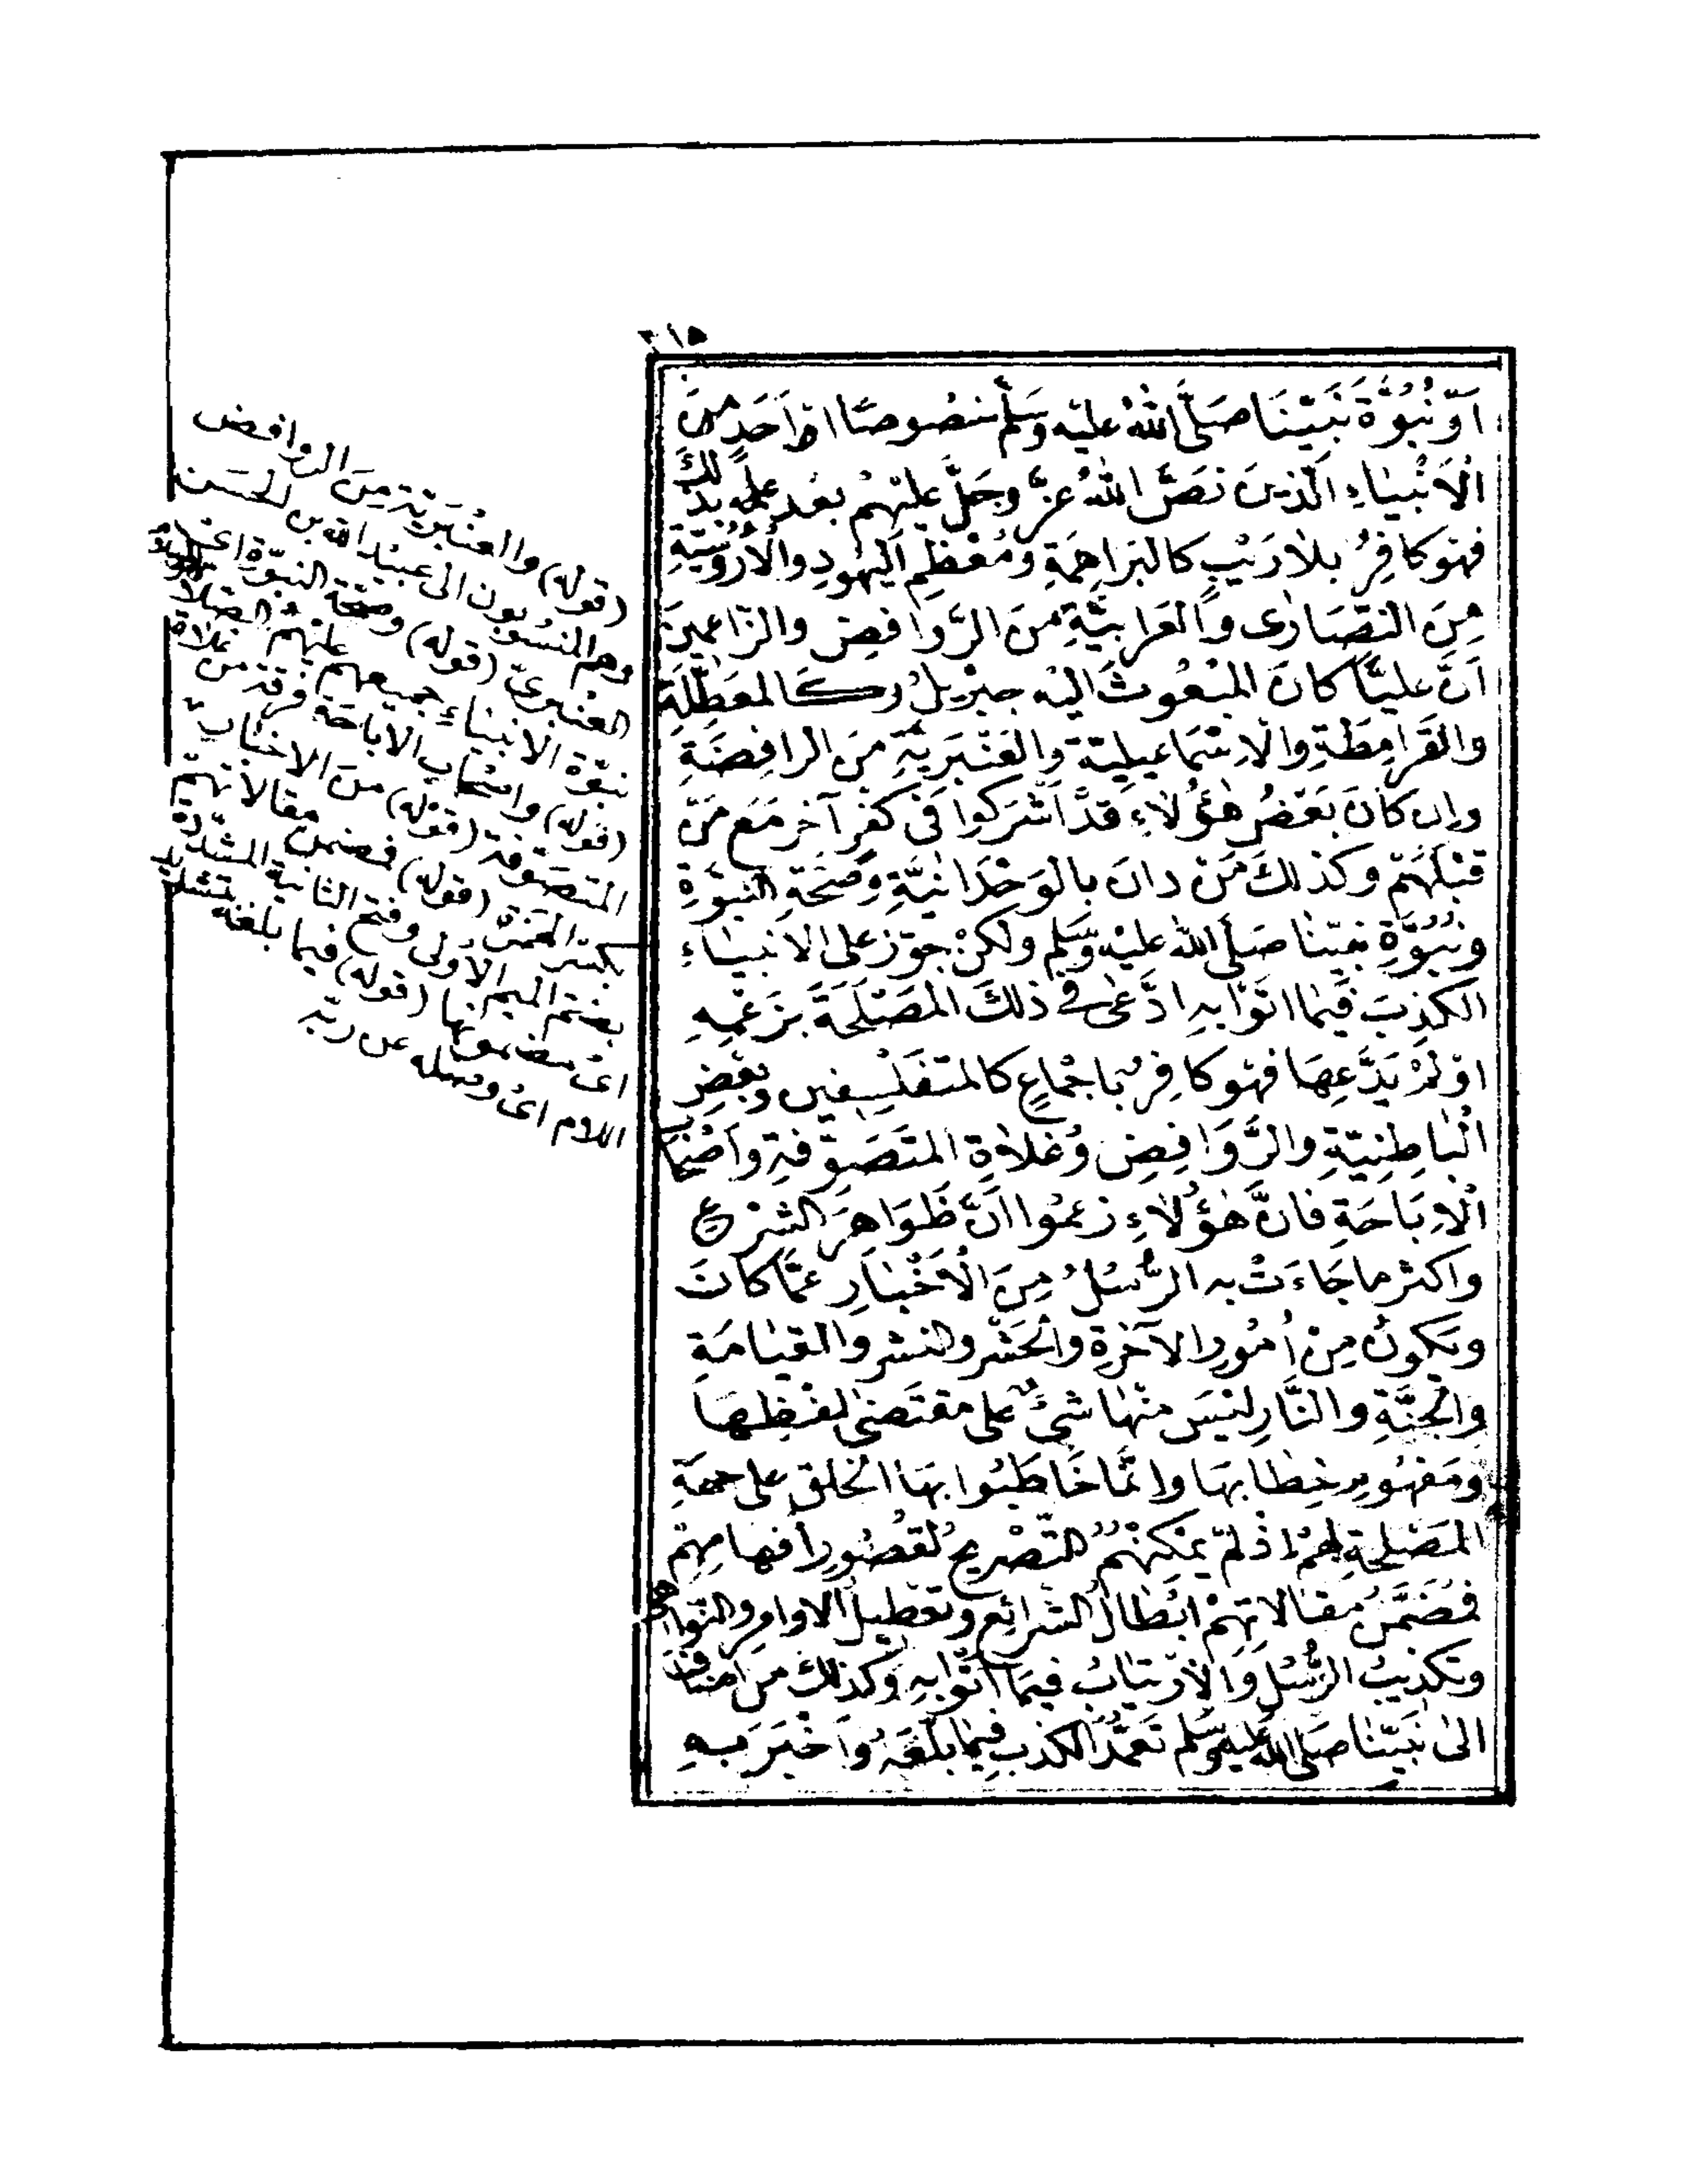 ٢١٥
اَوْ نُبُوَّةَ نَبِيِّنَا صَلَّى اللهُ عليْه وَسَلَّم خصُوصًا اوْ اَحَدٍ مِنَ
الْاَنْبِيَاءِ الَّذينَ نَصَّ اللهُ عَزَّ وجَلَّ عليْهِمْ بعْد عِلمِه بذلكَ
فهوَ كافِرٌ بلا رَيْبٍ كالبَرَاهِمَةِ ومُعْظَمِ اليَهُودِ والْاُرُوسِيَّةِ
مِنَ النَّصَارٰى وَالْغُرَابِيَّةِ مِنَ الرَّوَافِضِ والزَّاعِمينَ
اَنَّ عليًّا كانَ المبْعُوثَ اليْه جبْرِيلُ وكَالمعَطِّلَةِ
والقَرَامِطَةِ والْاِسْمَاعيلِيّةِ والعَنْبَرِيَّةِ مِنَ الرافِضَةِ
وان كانَ بَعْضُ هٰؤُلاءِ قدْ اَشْرَكوا فى كفْرٍ آخرَ مَعَ مَنْ
قبْلَهُمْ وكذلكَ مَنْ دانَ بالوَحْدَانيَّةِ وصِحَّةِ النبُوَّةِ
ونُبُوَّةِ نبيّنا صَلَّى اللهُ عليْه وسَلَّم ولكنْ جوّزَ على الانبيَاءِ
الكذِبَ فيمَا اتَوْا بهِ ادَّعٰى فى ذلكَ المَصْلَحَةَ بزَعْمِهِ
اوْ لمْ يَدَّعِهَا فهوَ كافِرٌ باجْماعٍ كالمتفَلْسِفينَ وبعْضِ
الْبَاطِنِيّةِ والرَّوَافِضِ وَغُلاةِ المتَصَوِّفةِ واَصْحَابِ
الْاِبَاحَةِ فانَّ هٰؤُلاءِ زعَمُوا انَّ ظَوَاهِرَ الشرْعِ
واكثرَ ما جَاءَتْ به الرُّسُلُ مِنَ الْاَخْبَارِ عمَّا كانَ
ويَكونُ مِنْ اُمُورِ الآخرَةِ والْحَشْرِ والنشرِ والقيَامَةِ
والْجنَّةِ والنَّارِ ليْسَ منْهَا شئٌ على مقتَضٰى لفْظِهَا
ومَفهُومِ خِطَابهَا وانمَّا خَاطَبُوا بهَا الخلقَ على جهةِ
المَصْلحَةِ لهُمْ اذْ لمْ يمْكِنْهُمُ التَّصْريحُ لقُصُورِ اَفهامِهِمْ
فمُضَمَّنُ مقالاتِهِمْ ابْطالُ الشرائِعِ وتعْطيلُ الاوامرِ والنّواهى
وتكذيبُ الرُّسُلِ وَالْارْتِيابُ فيمَا اتَوْا بهِ وكذلكَ مَنْ اضافَ
الى نَبيّنَا صَلى الله عليْه وسَلم تَعَمُّدَ الكذبِ فيمَا بلَّغهُ وَاَخْبَرَ بهِ
(قوله) والعنبرية من الروافض
وهم المنسوبون الى عبيد الله بن الحسن
العنبرىّ (قوله) وصحّة النبوّة اى
نبوّة الانبياء جميعهم عليهم الصلاة
(قوله) واصحاب الاباحة فرقة من غلاة
المتصوّفة (قوله) من الاخبار
بكسر الهمزة (قوله) فمضمن مقالاتهم
بضمّ الميم الاولى وفتح الثانية المشدّدة
اى مضمونها (قوله) فيما بلغه بتشديد
اللام اى وصله عن ربّه